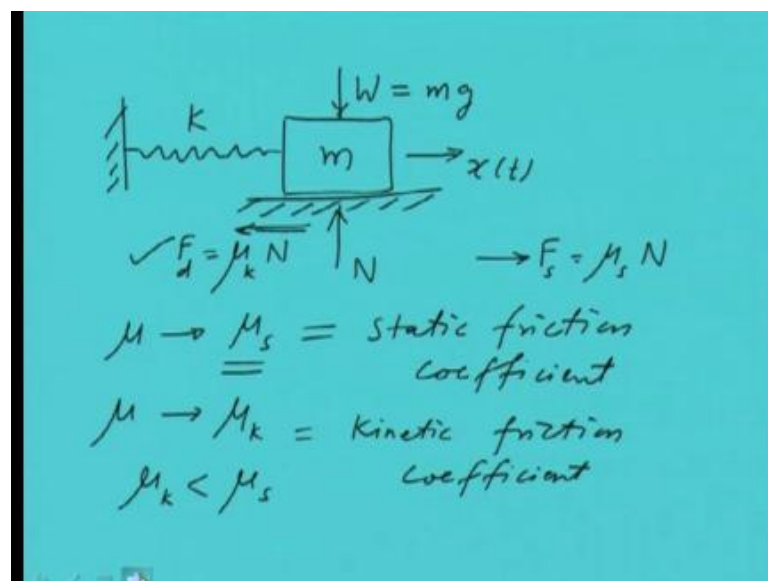 W = mg
K
m
x(t)
✓ F_d = μ_k N
N
→ F_s = μ_s N
μ → μ_s = static friction
coefficient
μ → μ_k = kinetic friction
coefficient
μ_k < μ_s